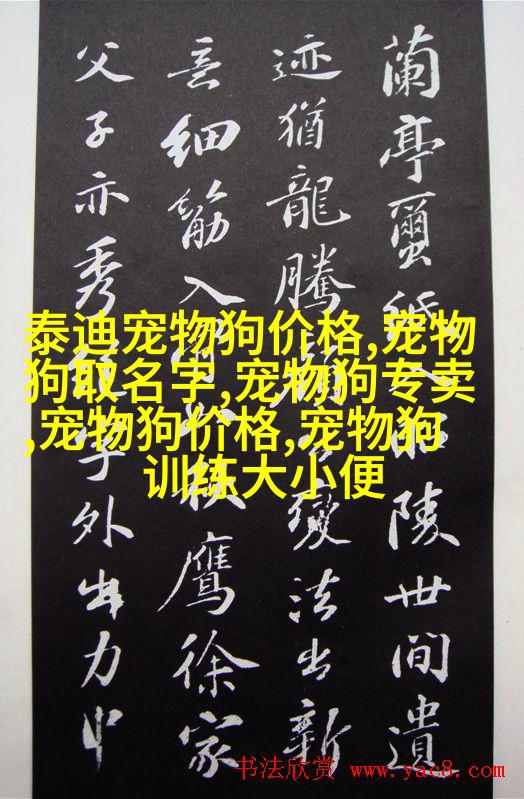 蘭亭陵世間遺
迹猶龍騰變法出新
意細筋入鷹徐家
父子亦秀字外出力中
泰迪宠物狗价格,宠物
狗取名字,宠物狗专卖
,宠物狗价格,宠物狗
训练大小便
书法欣赏 www.yac8.com